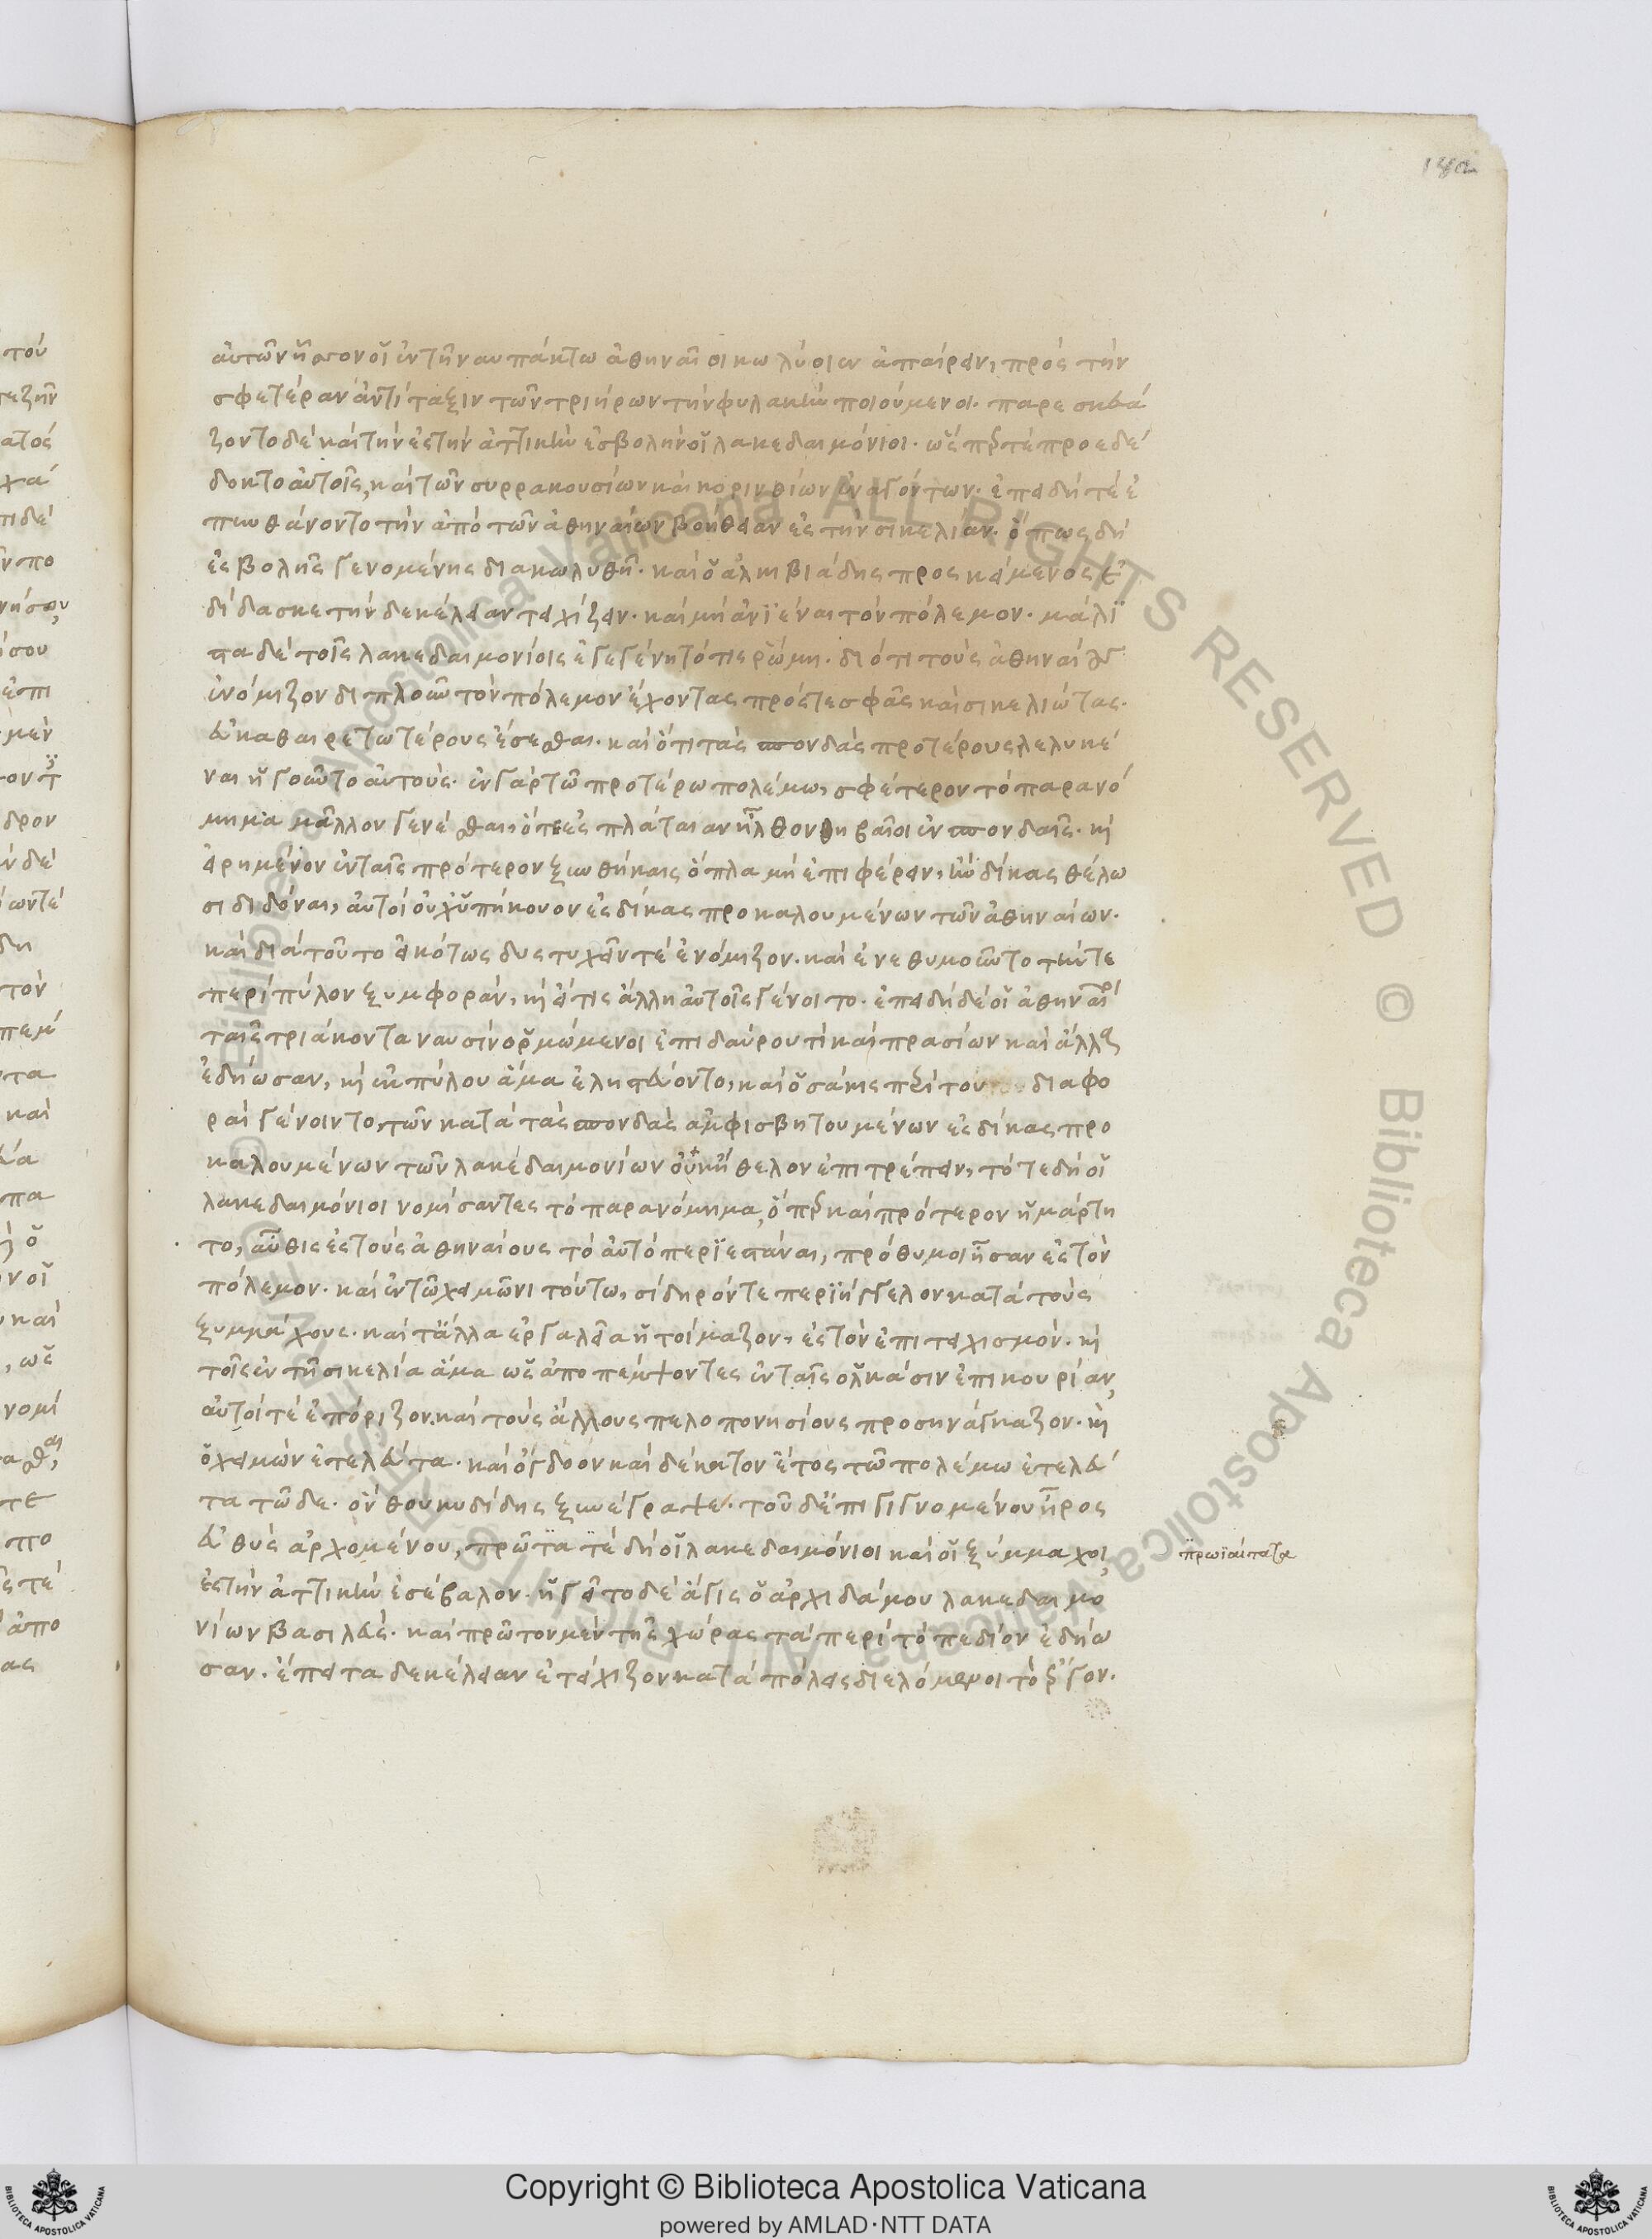 182
αὐτῶν ἧσσον οἱ ἐν τῆ ναυπάκτω ἀθηναῖοι κωλύοιεν ἀπαίρειν, πρὸς τὴν
σφετέραν ἀντίταξιν τῶν τριήρων τὴν φυλακὴν ποιούμενοι. παρεσκευά
ζοντο δὲ καὶ τὴν ἐς τὴν ἀττικὴν ἐσβολὴν οἱ λακεδαιμόνιοι. ὥσπερ τὲ προεδέ
δοκτο αὐτοῖς, καὶ τῶν συρρακουσίων καὶ κορινθίων ἐναγόντων. ἐπειδή τὲ ἐ
πυνθάνοντο τὴν ἀπὸ τῶν ἀθηναίων βοήθειαν ἐς τὴν σικελίαν. ὅπως δὴ
ἐσβολῆς γενομένης διακωλυθῆ. καὶ ὁ ἀλκιβιάδης προσκείμενος ἐ
δίδασκε τὴν δεκέλειαν τειχίζειν. καὶ μὴ ἀνϊέναι τὸν πόλεμον. μάλι
στα δὲ τοῖς λακεδαιμονίοις ἐγεγένητό τις ῥώμη. διότι τοὺς ἀθηναίους
ἐνόμιζον διπλοῦν τὸν πόλεμον ἔχοντας πρός τε σφᾶς καὶ σικελιώτας.
εὐκαθαιρετωτέρους ἔσεσθαι. καὶ ὅτι τὰς σπονδὰς προτέρους λελυκέ
ναι ἡγοῦντο αὐτούς. ἐν γὰρ τῶ προτέρω πολέμω, σφέτερον τὸ παρανό
μημα μᾶλλον γενέσθαι, ὅτι ἐς πλάταιαν ἦλθον θηβαῖοι ἐν σπονδαῖς. καὶ
εἰρημένον ἐν ταῖς πρότερον ξυνθήκαις ὅπλα μὴ ἐπιφέρειν, ἢν δίκας θέλω
σι διδόναι, αὐτοὶ οὐχ ὑπήκουον ἐς δίκας προκαλουμένων τῶν ἀθηναίων.
καὶ διὰ τοῦτο εἰκότως δυστυχεῖν τὲ ἐνόμιζον. καὶ ἐνεθυμοῦντο τήν τε
περὶ πύλον ξυμφοράν, καὶ εἴ τις ἄλλη αὐτοῖς γένοιτο. ἐπειδὴ δὲ οἱ ἀθηναῖοι
ταῖς τριάκοντα ναυσὶν ὁρμώμενοι ἐπιδαύρου τὶ καὶ πρασίων καὶ ἄλλα
ἐδήωσαν, καὶ ἐκ πύλου ἅμα ἐληστεύοντο, καὶ ὁσάκις περί του διαφο
ραὶ γένοιντο, τῶν κατὰ τὰς σπονδὰς ἀμφισβητουμένων ἐς δίκας προ
καλουμένων τῶν λακεδαιμονίων οὐκ ἤθελον ἐπιτρέπειν, τότε δὴ οἱ
λακεδαιμόνιοι νομίσαντες τὸ παρανόμημα, ὅπερ καὶ πρότερον ἡμάρτη
το, αὖθις ἐς τοὺς ἀθηναίους τὸ αὐτὸ περϊεστάναι, πρόθυμοι ἦσαν ἐς τὸν
πόλεμον. καὶ ἐν τῶ χειμῶνι τούτω, σίδηρόν τε περϊήγγελον κατὰ τοὺς
ξυμμάχους. καὶ τἄλλα ἐργαλεῖα ἡτοίμαζον, ἐς τὸν ἐπιτειχισμόν. καὶ
τοῖς ἐν τῆ σικελία ἅμα ὡς ἀποπέμψοντες ἐν ταῖς ὁλκάσιν ἐπικουρίαν,
αὐτοί τὲ ἐπόριζον. καὶ τοὺς ἄλλους πελοποννησίους προσηνάγκαζον. καὶ
ὁ χειμὼν ἐτελεύτα. καὶ ὄγδοον καὶ δέκατον ἔτος τῶ πολέμω ἐτελεύ
τα τῶδε. ὃν θουκυδίδης ξυνέγραψε. τοῦ δ' ἐπιγιγνομένου ἦρος
εὐθὺς ἀρχομένου, πρῶϊτατα δὴ οἱ λακεδαιμόνιοι καὶ οἱ ξύμμαχοι,
πρωϊαίτατα
ἐς τὴν ἀττικὴν ἐσέβαλον. ἡγεῖτο δὲ ἆγις ὁ ἀρχιδάμου λακεδαιμο
νίων βασιλεύς. καὶ πρῶτον μὲν τῆς χώρας τὰ περὶ τὸ πεδίον ἐδήω
σαν. ἔπειτα δεκέλειαν ἐτείχιζον κατὰ πόλεις διελόμενοι τὸ ἔργον.
Copyright © Biblioteca Apostolica Vaticana
powered by AMLAD·NTT DATA